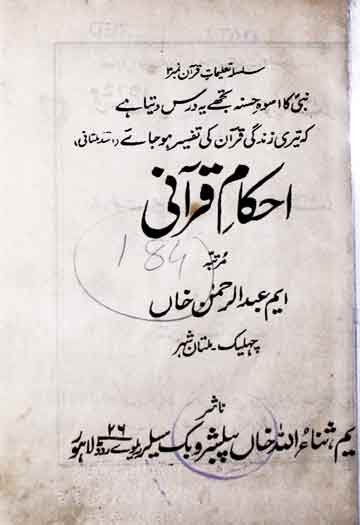 سلسلہ تعلیمات قرآن نمبر ۳
نبیؐ کا اسوۂ حسنہ تجھے یہ درس دیتا ہے
کہ تیری زندگی قرآن کی تفسیر ہو جائے (اسد ملتانی)
احکامِ قرآنی
184
مرتبہ
ایم عبدالرحمٰن خاں
چہلیک - ملتان شہر
ناشر
یم، ثناء اللہ خاں پبلیشر و بک سیلر ۲۶ ریلوے روڈ لاہور